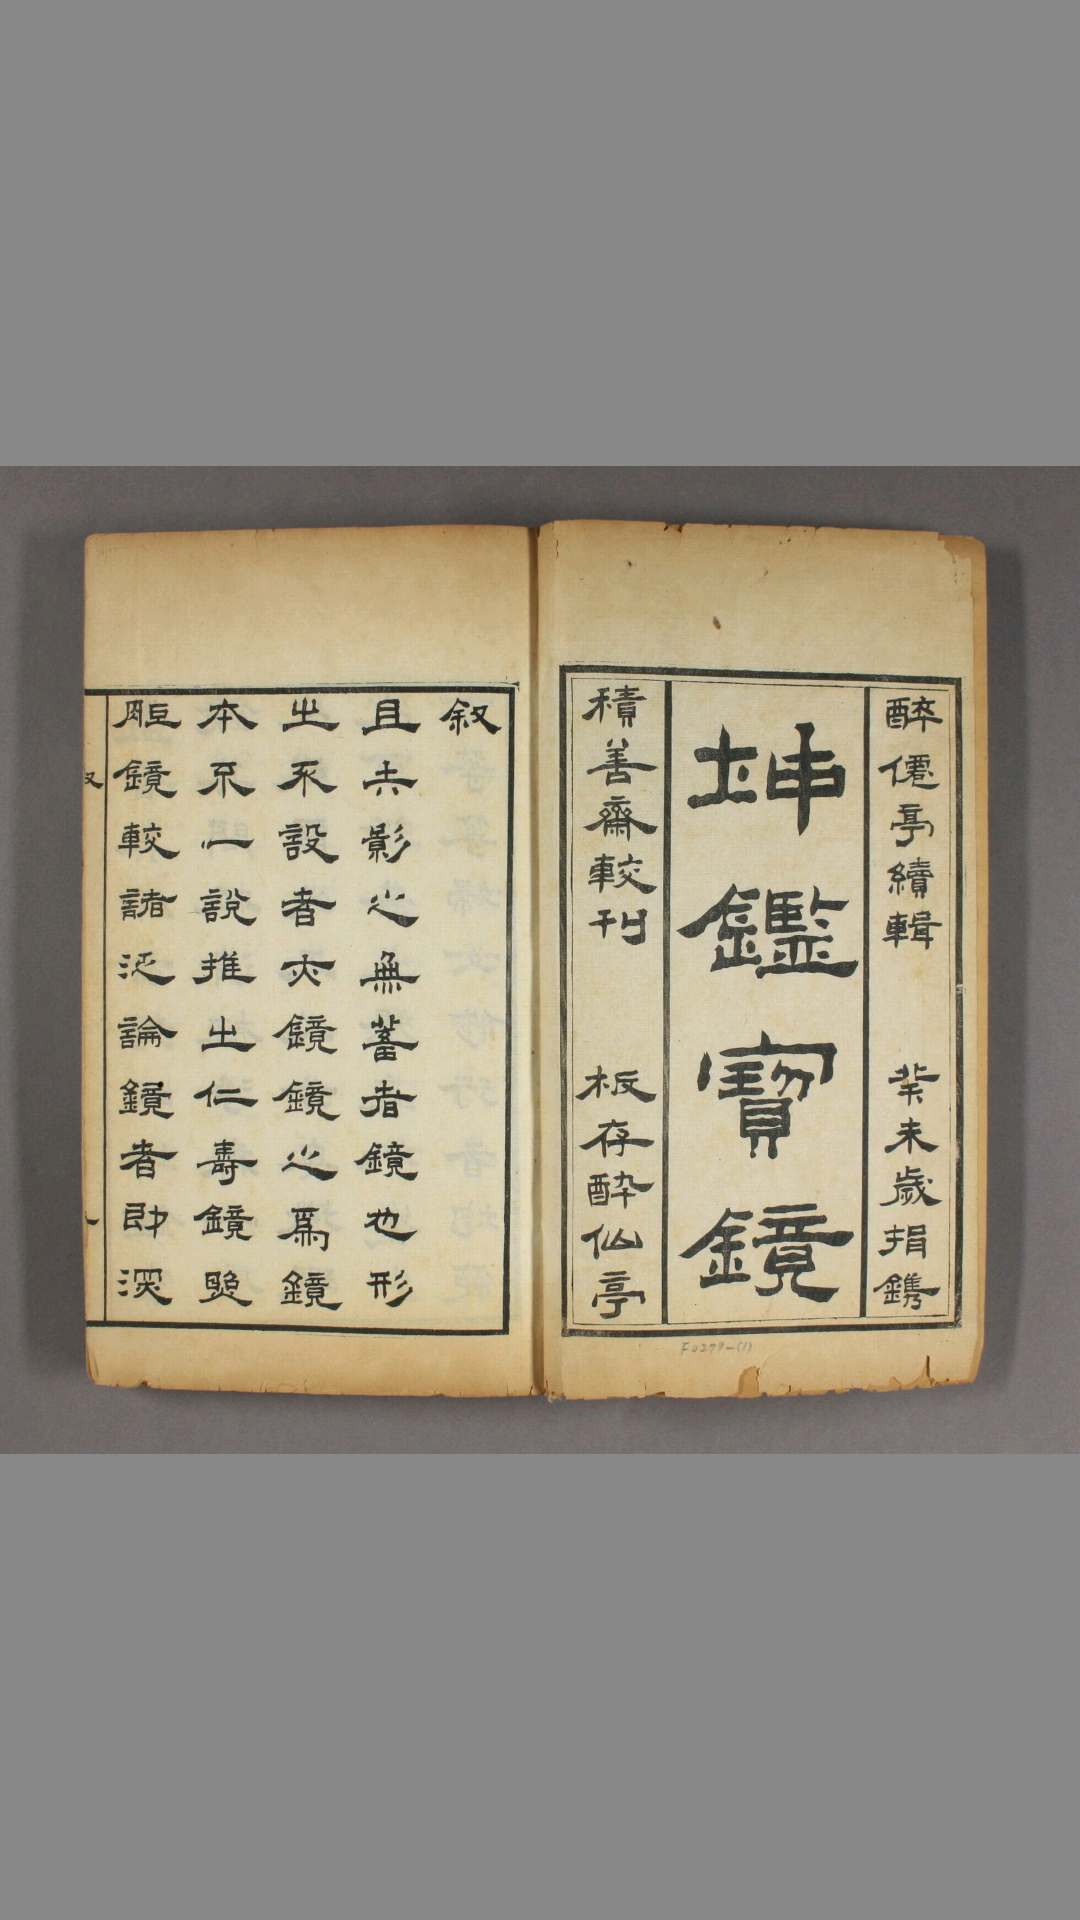 醉僊亭續輯 癸未歲捐鐫
坤鑑寶鏡
積善齋較刊 板存酔仙亭
F0279-(1)
叙
且夫影之無蓄者鏡也形
之不設者亦鏡鏡之爲鏡
本不一說推之仁壽鏡照
胆鏡較諸泛論鏡者即深